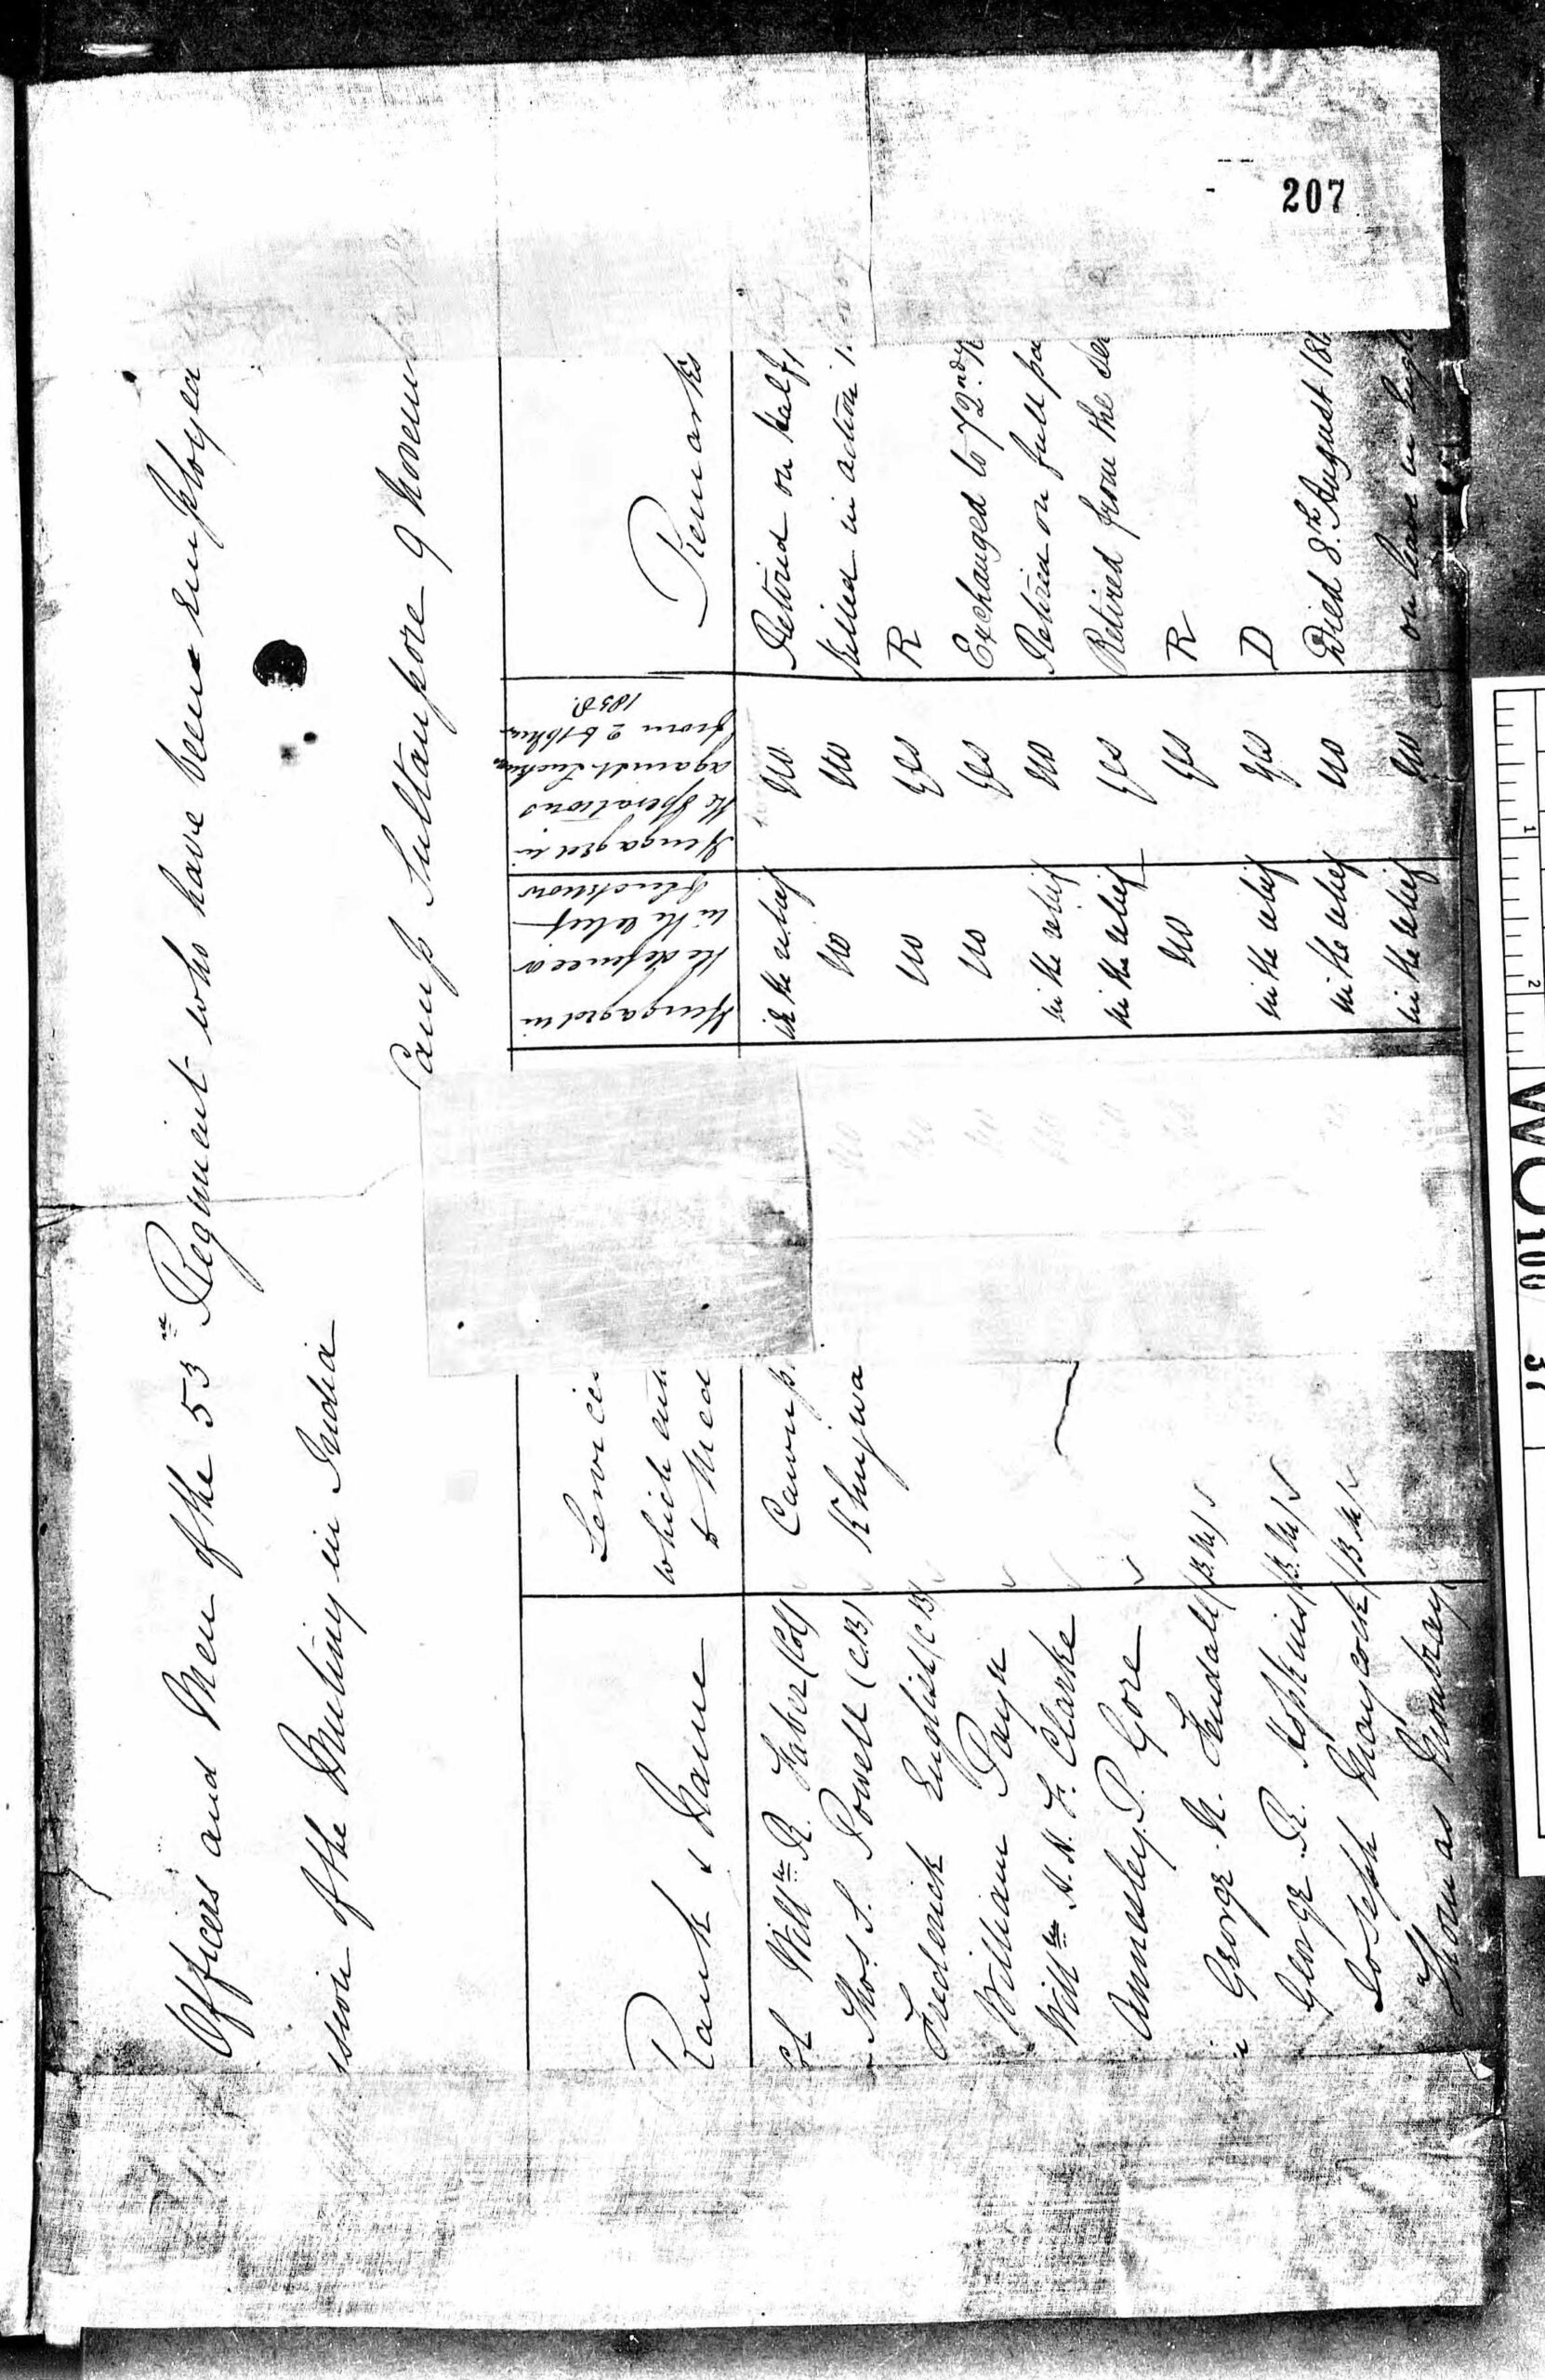 207
Officers and Men of the 53rd Regiment who have been employed
ssion of the Mutiny in India
Camp Sultanpore 9 November
Rank & Name
Services
which
Engaged in the defence or in the relief of Lucknow
Engaged in the Operations against Lucknow from 2 to 16 1858.
Remarks
Col Willm R. Faber (Col) Cawnp in the relief no Retired on half pay
Thos S. Powell (CB) Khujwa no no Killed in action 1 Nov 57
Frederick English (CB) no yes R
William Payn no yes Exchanged to 72nd
Willm H. H. F. Clarke in the relief no Retired on full pa
Annesley P. Gore in the relief yes Retired from the Ser
George N. Fendall (B.M) no yes R
George R. Hopkins (B.M) in the relief yes D
Joseph Maycock (B.M) in the relief no Died 8th August 18
Thomas Mowbray in the relief no on leave in Engl
WO 100
1
2